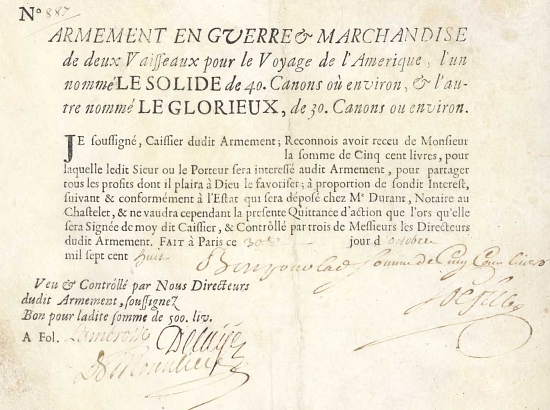 No 887
ARMEMENT EN GUERRE & MARCHANDISE
de deux Vaisseaux pour le Voyage de l'Amerique, l'un
nommé LE SOLIDE de 40. Canons où environ, & l'au-
tre nommé LE GLORIEUX, de 30. Canons ou environ.
JE soussigné, Caissier dudit Armement; Reconnois avoir receu de Monsieur
la somme de Cinq cent livres, pour
laquelle ledit Sieur ou le Porteur sera interessé audit Armement, pour partager
tous les profits dont il plaira à Dieu le favoriser; à proportion de sondit Interest,
suivant & conformément à l'Estat qui sera déposé chez Me Durant, Notaire au
Chastelet, & ne vaudra cependant la presente Quittance d'action que l'ors qu'elle
sera Signée de moy dit Caissier, & Controllé par trois de Messieurs les Directeurs
dudit Armement. FAIT à Paris ce 30e jour d'octobre
mil sept cent huit Bon pour lad somme de Cinq Cens livres
Veu & Controllé par Nous Directeurs
dudit Armement, soussignez
Bon pour ladite somme de 500. liv.
A Fol.